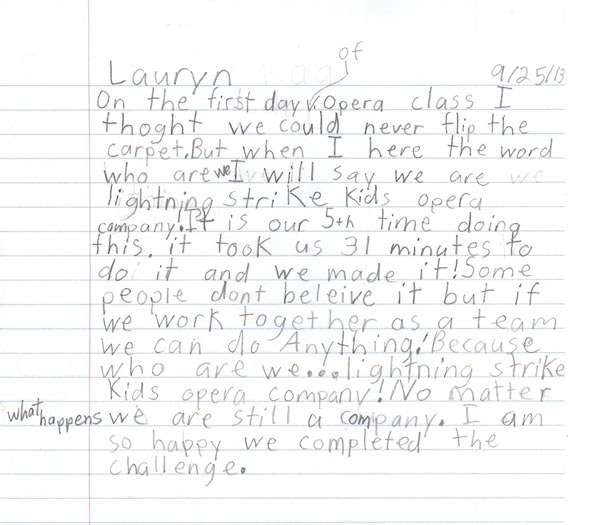 of
Lauryn 9/25/13
On the first day v. Opera class I
thoght we could never flip the
carpet. But when I here the word
who are we I will say we are we
lightning strike Kids opera
company! It is our 5th time doing
this. it took us 31 minutes to
do it and we made it! Some
people dont beleive it but if
we work together as a team
we can do Anything! Because
who are we... lightning strike
Kids opera company! No matter
what happens we are still a company. I am
so happy we completed the
challenge.